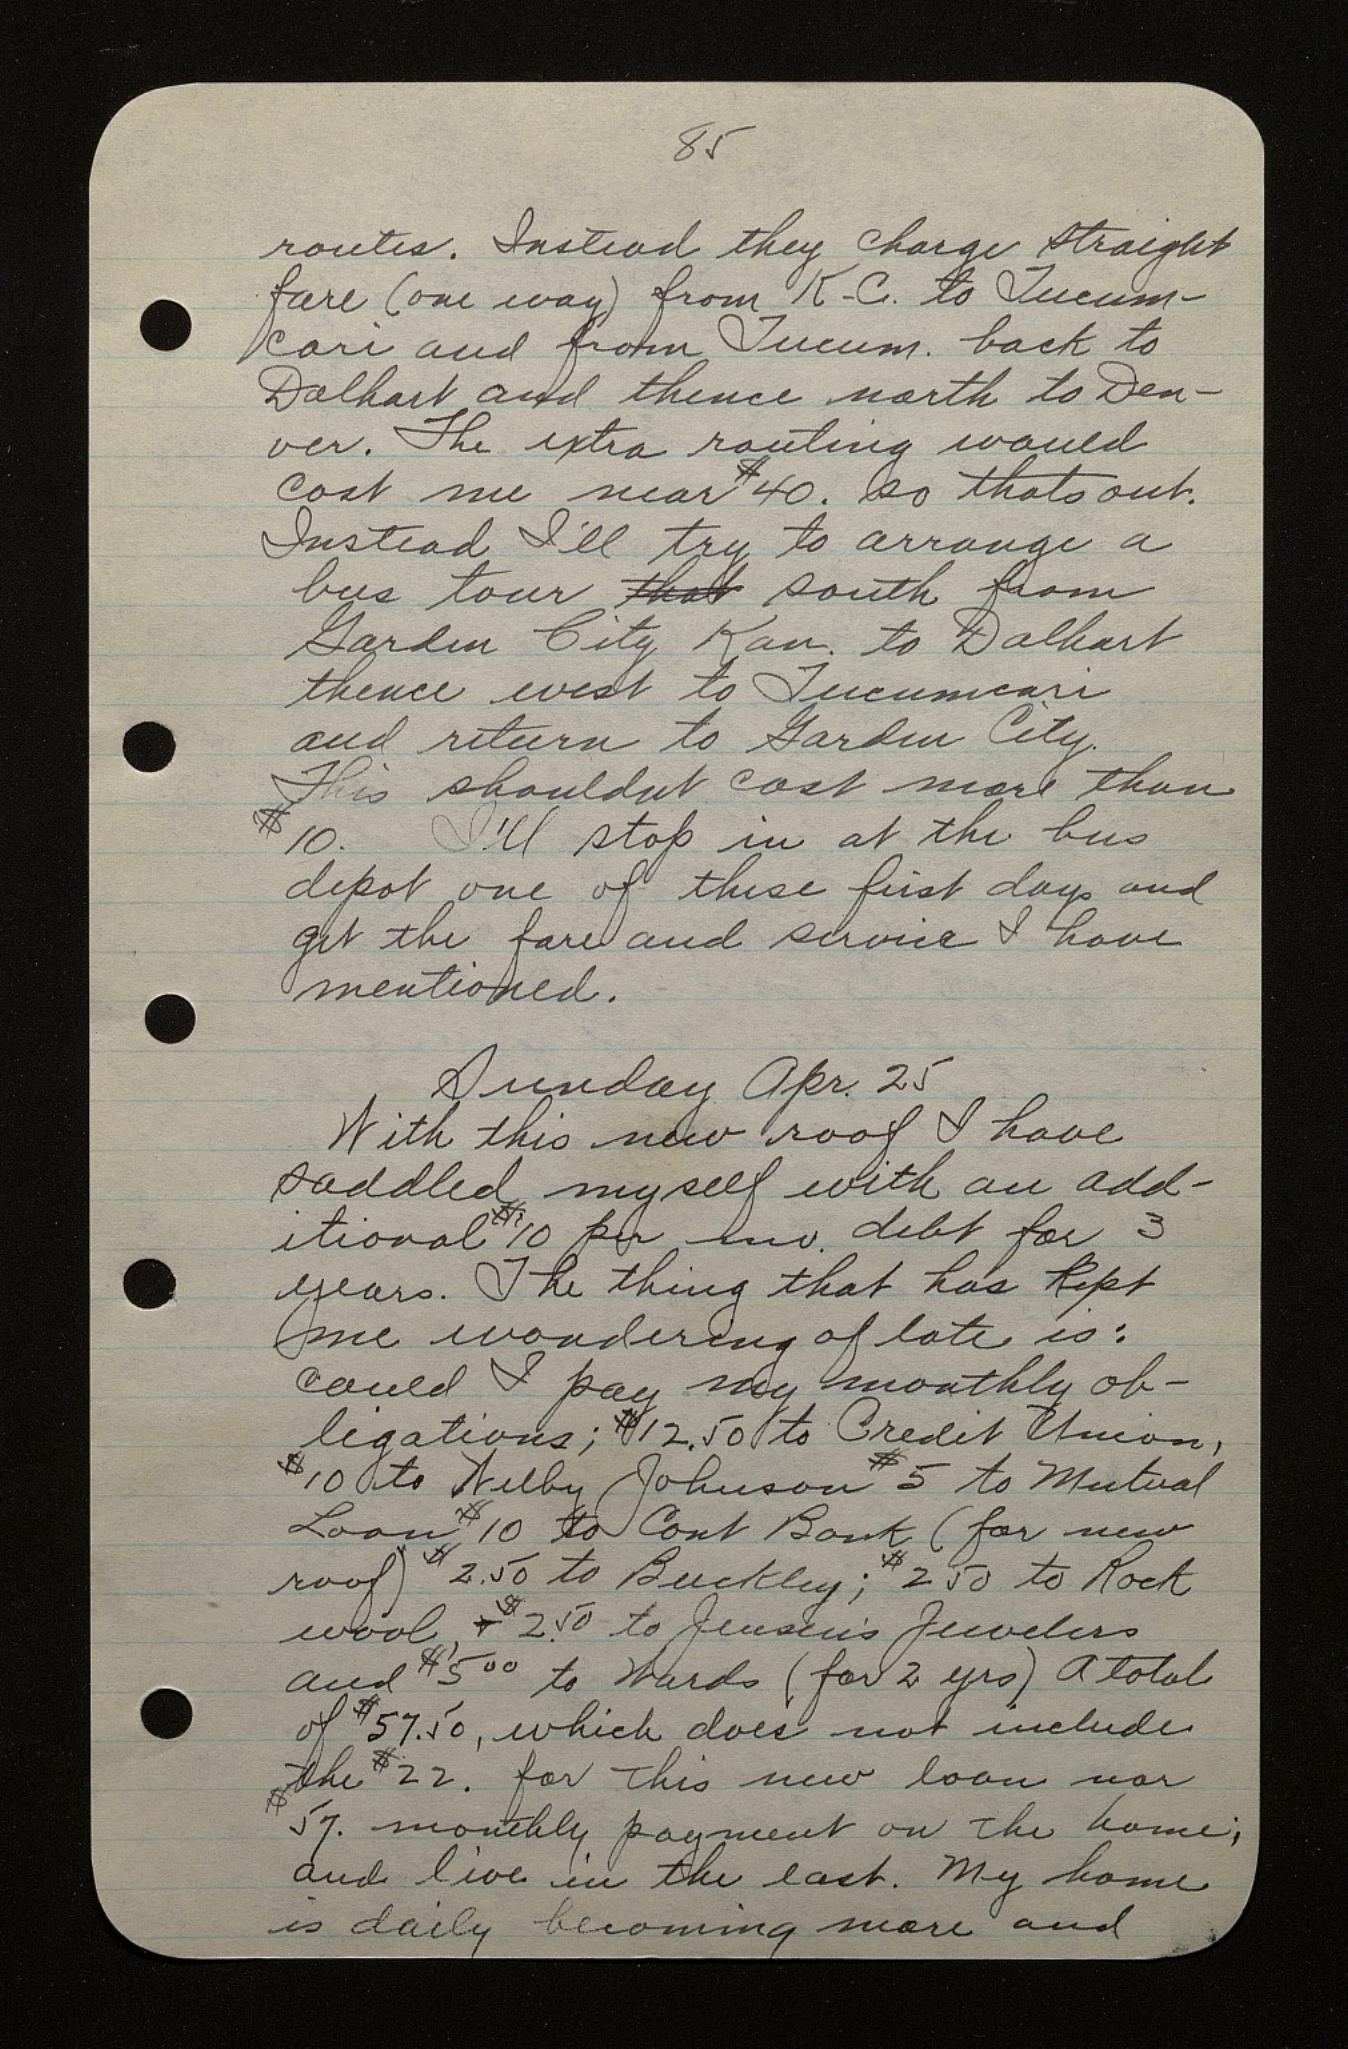 85
routes. Instead they charge straight
fare (one way) from K-C. to Tucum-
cari and from Tucum. back to
Dalhart and thence north to Den-
ver. The extra routing would
cost me near $40. so thats out.
Instead I'll try to arrange a
bus tour that south from
Garden City Kan. to Dalhart
thence west to Tucumcari
and return to Garden City.
This shouldnt cost more than
$10. I'll stop in at the bus
depot one of these first days and
get the fare and service I have
mentioned.
Sunday Apr. 25
With this new roof I have
saddled myself with an add-
itional $10 per mo. debt for 3
years. The thing that has kept
me wondering of late is:
could I pay my monthly ob-
ligations; $12.50 to Credit Union,
$10 to Welby Johnson $5 to Mutual
Loan $10 to Cont Bank (for new
roof) $2.50 to Buckley; $2 50 to Rock
wool, + $2.50 to Jensen's Jewelers
and $5 00 to Wards (for 2 yrs) A total
of $57.50, which does not include
the $22. for this new loan nor
$57. monthly payment on the home;
and live in the east. My home
is daily becoming more and